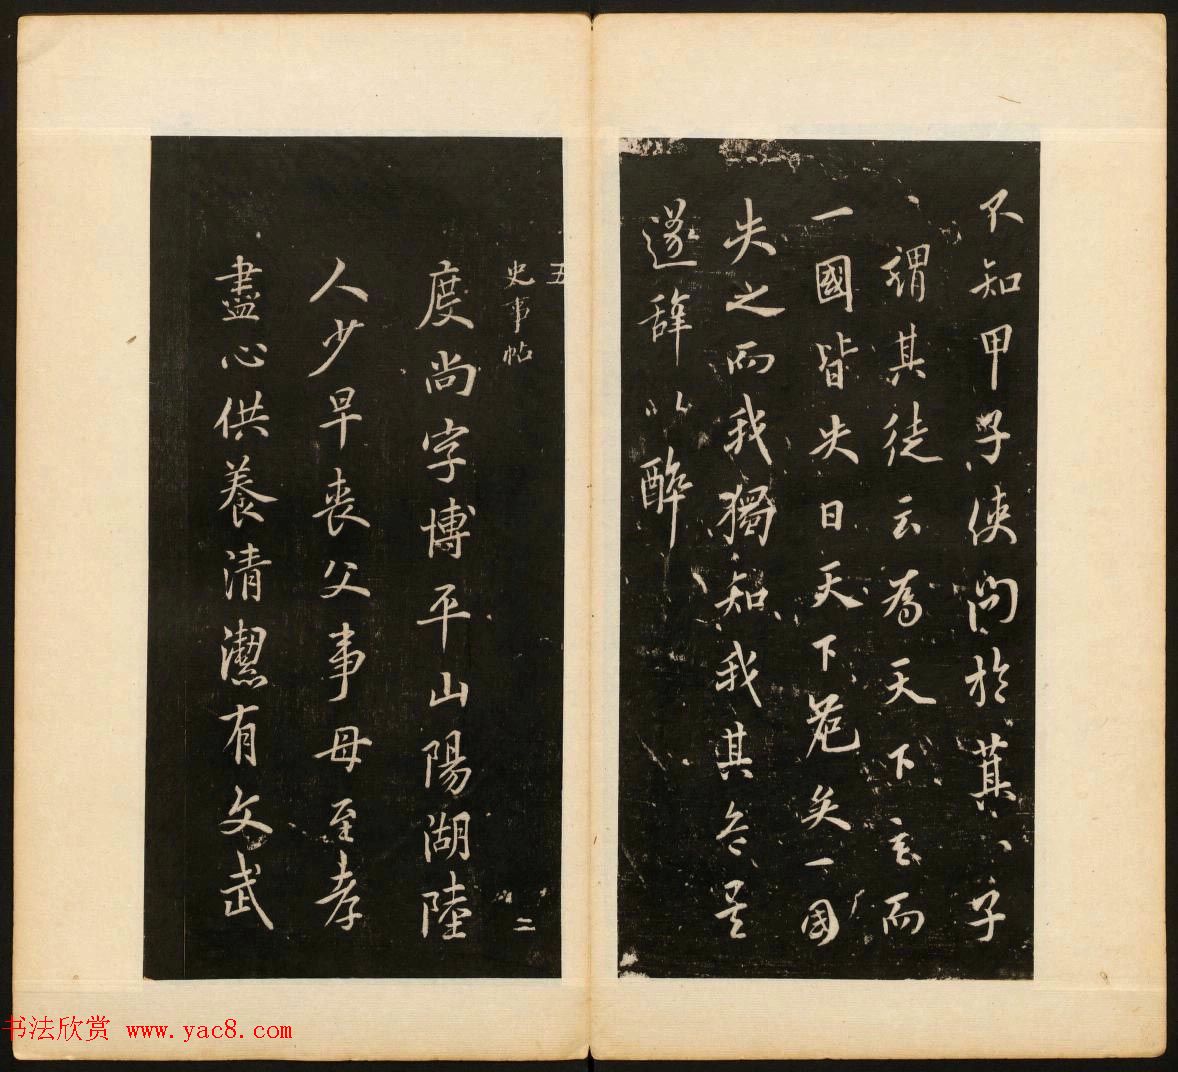 不知甲子使問於萁子
謂其徒云為天下主而
一國皆失日天下危矣一国
失之而我獨知我其
遂辞以醉
五
史事帖
二
度尚字博平山陽湖陸
人少早喪父事母至孝
盡心供養清潔有文武
书法欣赏 www.yac8.com